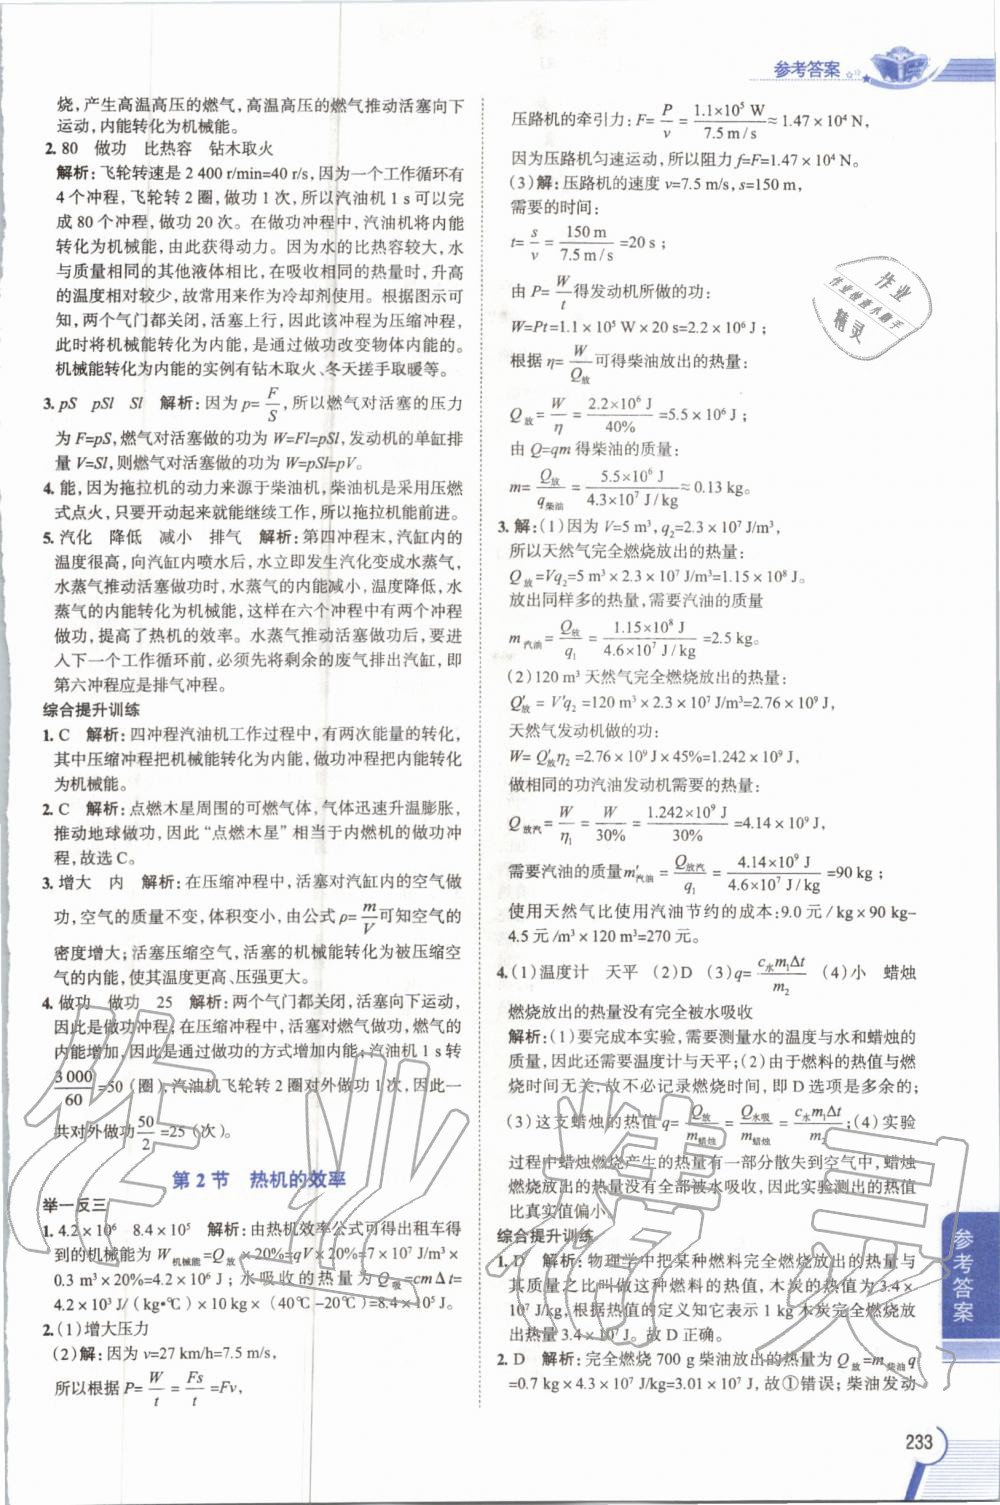 参考答案
烧,产生高温高压的燃气,高温高压的燃气推动活塞向下
运动,内能转化为机械能。
2. 80 做功 比热容 钻木取火
解析:飞轮转速是 2 400 r/min=40 r/s,因为一个工作循环有
4 个冲程,飞轮转 2 圈,做功 1 次,所以汽油机 1 s 可以完
成 80 个冲程,做功 20 次。在做功冲程中,汽油机将内能
转化为机械能,由此获得动力。因为水的比热容较大,水
与质量相同的其他液体相比,在吸收相同的热量时,升高
的温度相对较少,故常用来作为冷却剂使用。根据图示可
知,两个气门都关闭,活塞上行,因此该冲程为压缩冲程,
此时将机械能转化为内能,是通过做功改变物体内能的。
机械能转化为内能的实例有钻木取火、冬天搓手取暖等。
3. pS pSl Sl 解析:因为 p=F/S,所以燃气对活塞的压力
为 F=pS,燃气对活塞做的功为 W=Fl=pSl,发动机的单缸排
量 V=Sl,则燃气对活塞做的功为 W=pSl=pV。
4. 能,因为拖拉机的动力来源于柴油机,柴油机是采用压燃
式点火,只要开动起来就能继续工作,所以拖拉机能前进。
5. 汽化 降低 减小 排气 解析:第四冲程末,汽缸内的
温度很高,向汽缸内喷水后,水立即发生汽化变成水蒸气,
水蒸气推动活塞做功时,水蒸气的内能减小,温度降低,水
蒸气的内能转化为机械能,这样在六个冲程中有两个冲程
做功,提高了热机的效率。水蒸气推动活塞做功后,要进
入下一个工作循环前,必须先将剩余的废气排出汽缸,即
第六冲程应是排气冲程。
综合提升训练
1. C 解析:四冲程汽油机工作过程中,有两次能量的转化,
其中压缩冲程把机械能转化为内能,做功冲程把内能转化
为机械能。
2. C 解析:点燃木星周围的可燃气体,气体迅速升温膨胀,
推动地球做功,因此“点燃木星”相当于内燃机的做功冲
程,故选 C。
3. 增大 内 解析:在压缩冲程中,活塞对汽缸内的空气做
功,空气的质量不变,体积变小,由公式 ρ=m/V可知空气的
密度增大;活塞压缩空气,活塞的机械能转化为被压缩空
气的内能,使其温度更高、压强更大。
4. 做功 做功 25 解析:两个气门都关闭,活塞向下运动,
因此是做功冲程;在压缩冲程中,活塞对燃气做功,燃气的
内能增加,因此是通过做功的方式增加内能;汽油机 1 s 转
3 000/60=50 (圈),汽油机飞轮转 2 圈对外做功 1 次,因此一
共对外做功50/2=25 (次)。
第 2 节 热机的效率
举一反三
1. 4.2×10⁶ 8.4×10⁵ 解析:由热机效率公式可得出租车得
到的机械能为 W机械能=Q放×20%=qV×20%=7×10⁷ J/m³×
0.3 m³×20%=4.2×10⁶ J;水吸收的热量为 Q吸=cmΔt=
4.2×10³ J/(kg•℃)×10 kg×(40℃-20℃)=8.4×10⁵ J。
2. (1)增大压力
(2)解:因为 v=27 km/h=7.5 m/s,
所以根据 P=W/t=Fs/t=Fv,
压路机的牵引力:F=P/v=1.1×10⁵ W/7.5 m/s≈1.47×10⁴ N,
因为压路机匀速运动,所以阻力 f=F=1.47×10⁴ N。
(3)解:压路机的速度 v=7.5 m/s,s=150 m,
需要的时间:
t=s/v=150 m/7.5 m/s=20 s;
由 P=W/t得发动机所做的功:
W=Pt=1.1×10⁵ W×20 s=2.2×10⁶ J;
根据 η=W/Q放可得柴油放出的热量:
Q放=W/η=2.2×10⁶ J/40%=5.5×10⁶ J;
由 Q=qm 得柴油的质量:
m=Q放/q柴油=5.5×10⁶ J/4.3×10⁷ J/kg≈0.13 kg。
3. 解:(1)因为 V=5 m³,q₂=2.3×10⁷ J/m³,
所以天然气完全燃烧放出的热量:
Q放=Vq₂=5 m³×2.3×10⁷ J/m³=1.15×10⁸ J。
放出同样多的热量,需要汽油的质量
m汽油=Q放/q₁=1.15×10⁸ J/4.6×10⁷ J/kg=2.5 kg。
(2)120 m³ 天然气完全燃烧放出的热量:
Q′放=V′q₂=120 m³×2.3×10⁷ J/m³=2.76×10⁹ J,
天然气发动机做的功:
W=Q′放η₂=2.76×10⁹ J×45%=1.242×10⁹ J,
做相同的功汽油发动机需要的热量:
Q放汽=W/η₁=W/30%=1.242×10⁹ J/30%=4.14×10⁹ J,
需要汽油的质量m′汽油=Q放汽/q₁=4.14×10⁹ J/4.6×10⁷ J/kg=90 kg;
使用天然气比使用汽油节约的成本:9.0 元/kg×90 kg-
4.5 元/m³×120 m³=270 元。
4. (1)温度计 天平 (2)D (3)q=c水m₁Δt/m₂ (4)小 蜡烛
燃烧放出的热量没有完全被水吸收
解析:(1)要完成本实验,需要测量水的温度与水和蜡烛的
质量,因此还需要温度计与天平;(2)由于燃料的热值与燃
烧时间无关,故不必记录燃烧时间,即 D 选项是多余的;
(3)这支蜡烛的热值 q=Q放/m蜡烛=Q水吸/m蜡烛=c水m₁Δt/m₂;(4)实验
过程中蜡烛燃烧产生的热量有一部分散失到空气中,蜡烛
燃烧放出的热量没有全部被水吸收,因此实验测出的热值
比真实值偏小。
综合提升训练
1. D 解析:物理学中把某种燃料完全燃烧放出的热量与
其质量之比叫做这种燃料的热值,木炭的热值为 3.4×
10⁷ J/kg,根据热值的定义知它表示 1 kg 木炭完全燃烧放
出热量 3.4×10⁷ J。故 D 正确。
2. D 解析:完全燃烧 700 g 柴油放出的热量为 Q放=m柴油q
=0.7 kg×4.3×10⁷ J/kg=3.01×10⁷ J,故①错误;柴油发动
参考答案
233
作业
作业检查小助手
精灵
作业精灵